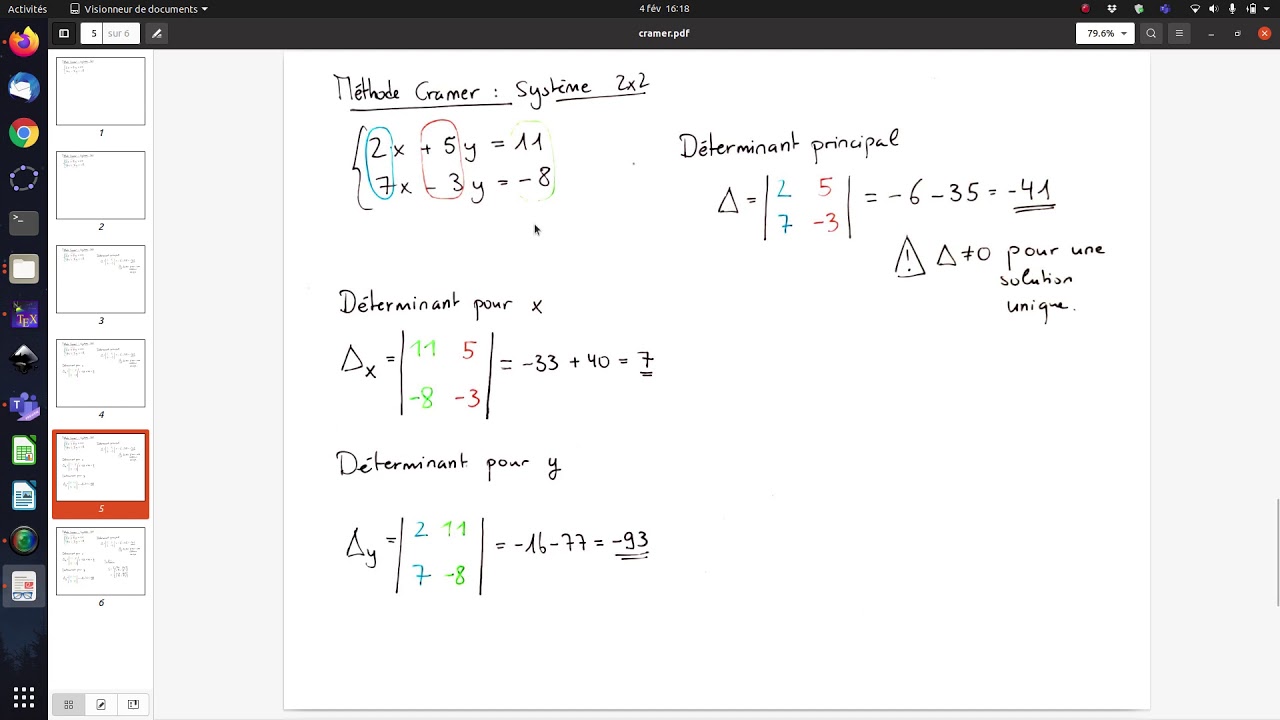 Activités
Visionneur de documents
4 fév 16:18
5
sur 6
cramer.pdf
79.6%
1
2
3
4
5
6
Méthode Cramer : Système 2x2
2x + 5y = 11
7x - 3y = -8
Déterminant principal
Δ = | 2 5 | = -6 - 35 = -41
| 7 -3 |
! Δ ≠ 0 pour une
solution
unique.
Déterminant pour x
Δx = | 11 5 | = -33 + 40 = 7
| -8 -3 |
Déterminant pour y
Δy = | 2 11 | = -16 - 77 = -93
| 7 -8 |